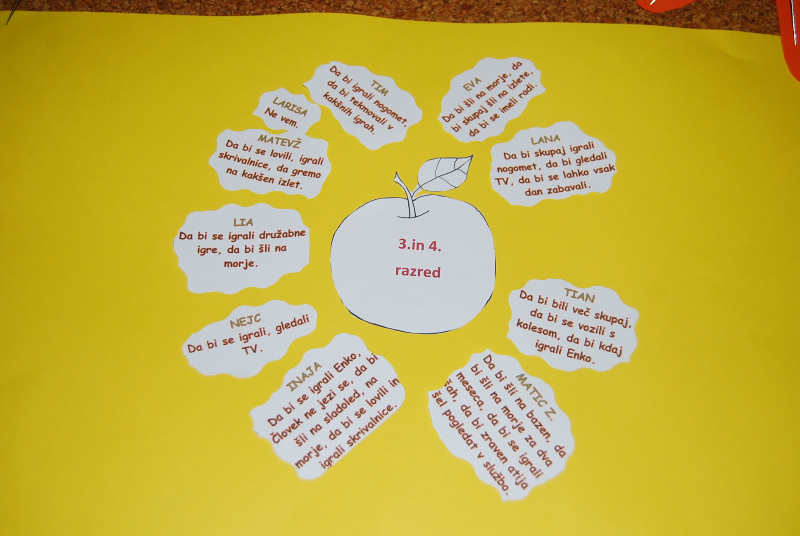 3.in 4.
razred
TIM
Da bi igrali nogomet,
da bi tekmovali v
kakšnih igrah.
EVA
Da bi šli na morje, da
bi skupaj šli na izlete,
da bi se imeli radi.
LARISA
Ne vem.
MATEVŽ
Da bi se lovili, igrali
skrivalnice, da gremo
na kakšen izlet.
LANA
Da bi skupaj igrali
nogomet, da bi gledali
TV, da bi se lahko vsak
dan zabavali.
LIA
Da bi se igrali družabne
igre, da bi šli na
morje.
TIAN
Da bi bili več skupaj,
da bi se vozili s
kolesom, da bi kdaj
igrali Enko.
NEJC
Da bi se igrali, gledali
TV.
INAJA
Da bi se igrali Enko,
Človek ne jezi se, da bi
šli na sladoled, na
morje, da bi se lovili in
igrali skrivalnice.
MATIC Z.
Da bi šli na bazen, da
bi šli na morje za dva
meseca, da bi se igrali
šah, da bi zraven atija
šel pogledat v službo.